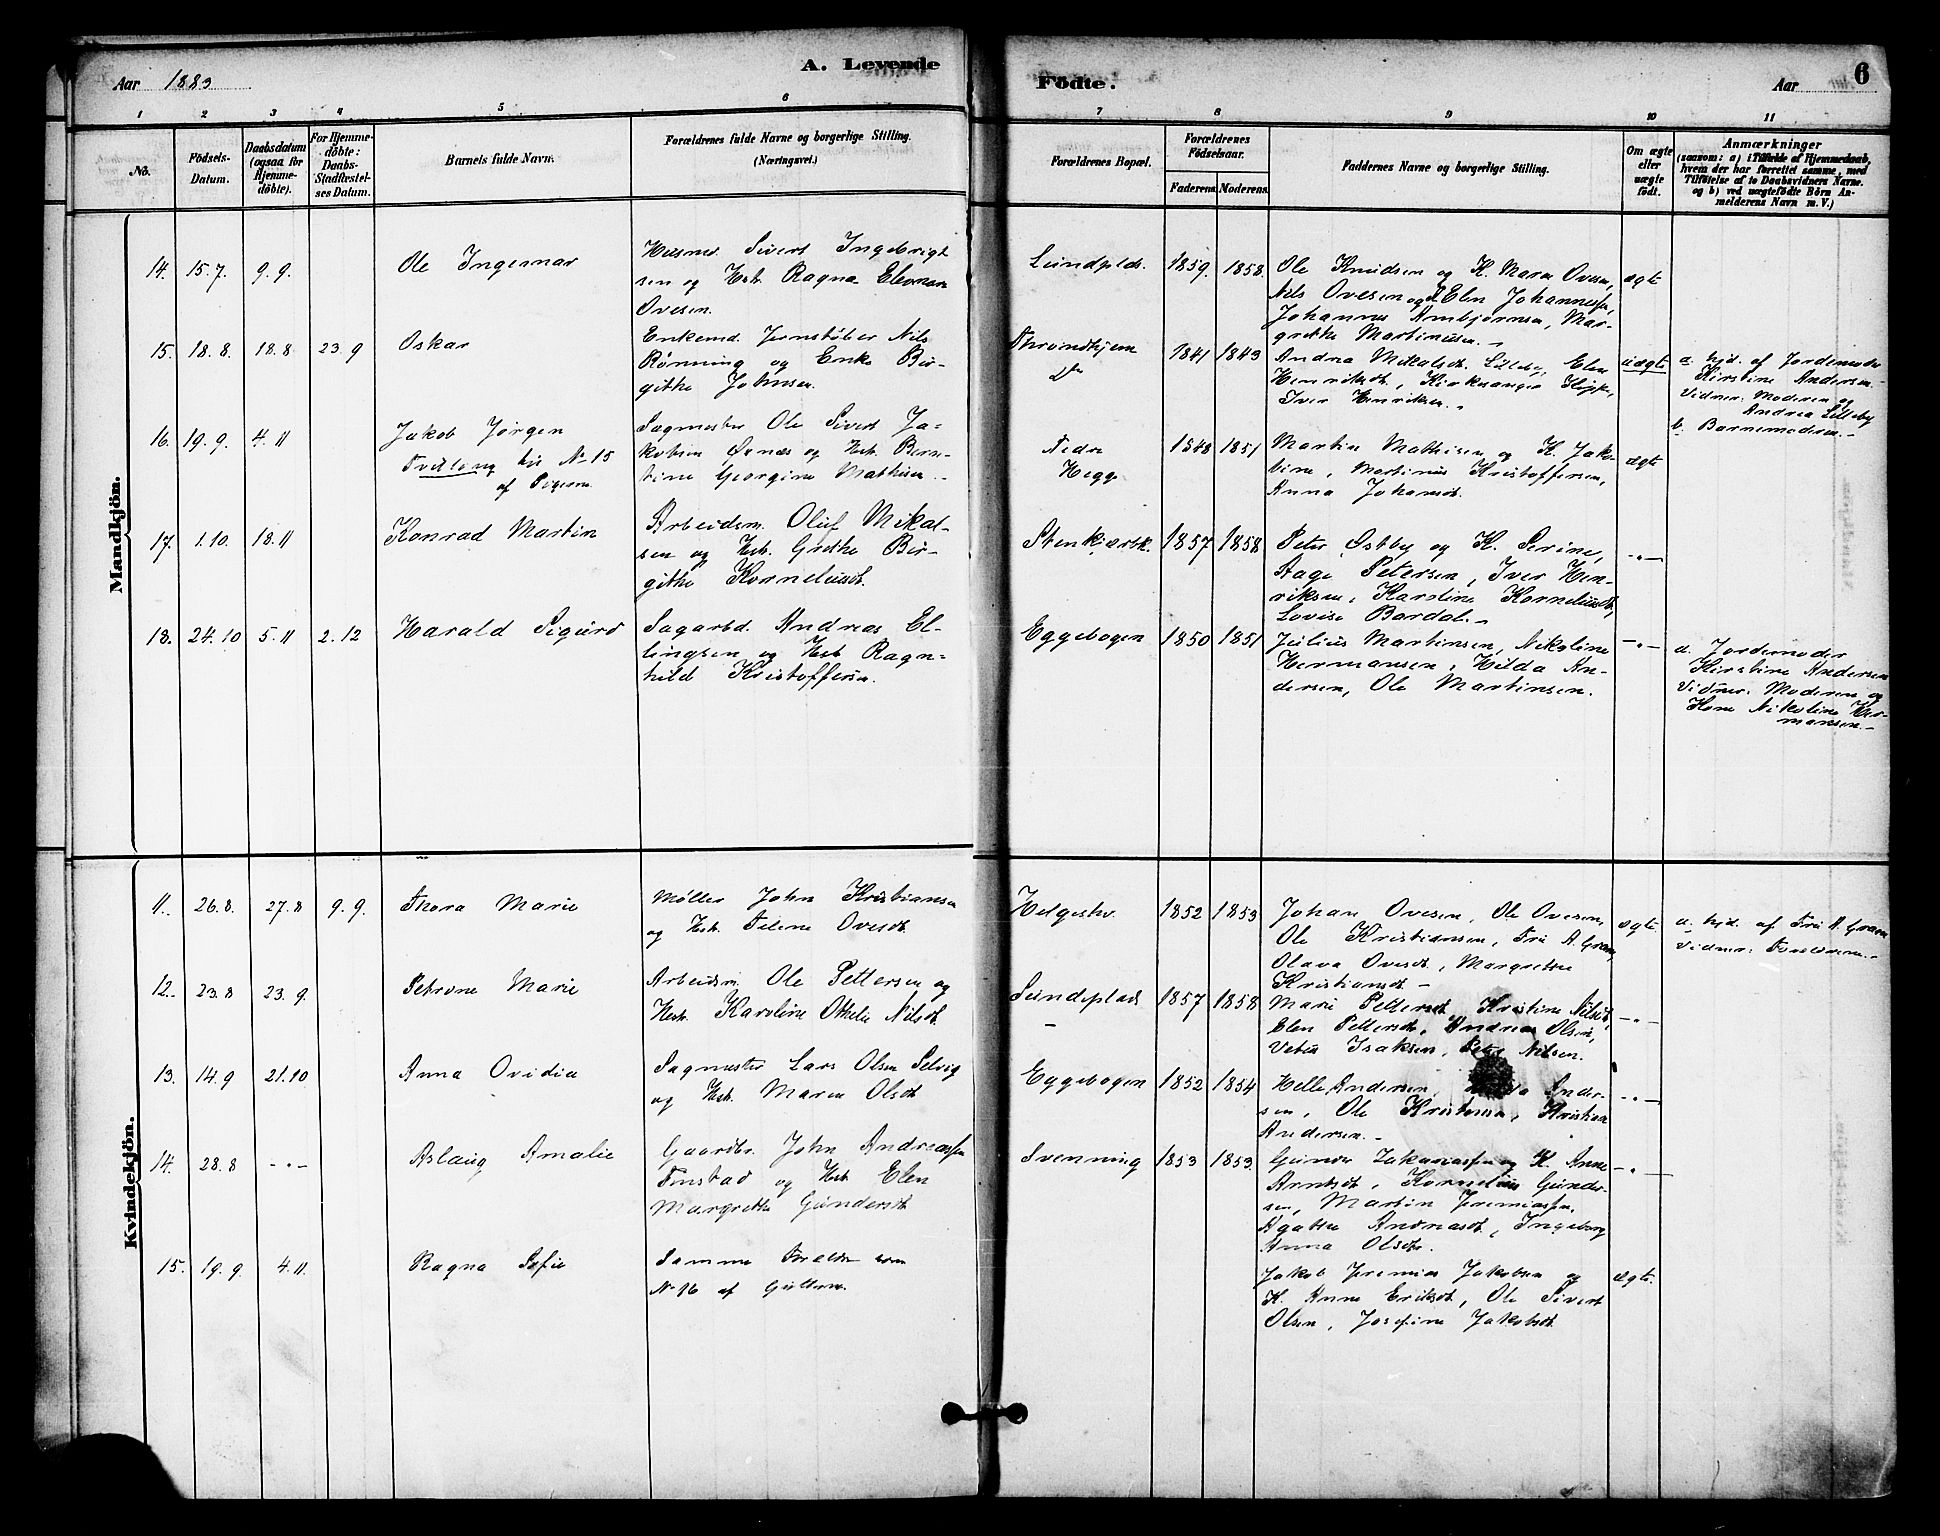 Aar 1883
A. Levende
1 2 3 4 5 6
No.
Födsels-Datum.
Daabsdatum (ogsaa for Hjemmedöbte).
For Hjemmedöbte: Daabs-Stadfæstelses Datum.
Barnets fulde Navn.
Forældrenes fulde Navne og borgerlige Stilling. (Næringsvei.)
Mandkjön.
14. 15.7. 9.9. Ole Ingemar
Husmd. Sivert Ingebrigt
sen og Hst. Ragna
Ovesen.
15. 18.8. 18.8 23.9 Oskar
Enkemd. Jernstøber Nils
Rønning og Enke Bir-
gitte Johnsen.
16. 19.9. 4.11 Jakob Jørgen
Tvilling til No 15
af Pigerne
Sagmester Ole Sivert Ja-
kobsen Øvnæs og Hst. Bern-
tine Georgine Mathisen.
17. 1.10. 18.11 Konrad Martin
Arbeidsm. Oluf Mikal-
sen og Hst. Grethe Bir-
githe Korneliusdt.
18. 24.10 5.11 2.12 Harald Sigurd
Sagarbd. Andreas El-
lingsen og Hst. Ragn-
hild Kristoffersen.
Kvindekjön.
11. 26.8. 27.8 9.9. Thora Marie
Møller John Kristiansen
og Hst. Ovesdt.
12. 23.8 23.9. Petrone Marie
Arbeidsm. Ole Pettersen og
Hst. Karoline Othelie Nilsdt.
13. 14.9 21.10 Anna Ovidia
Sagmester Lars Olsen Selvig
og Hst. Maren Olsdt.
14. 28.8 -"- Aslaug Amalie
Gaardbr. John Andreassen
Finstad og Hst. Elen
Margrethe Gundersdt
15. 19.9. 4.11. Ragna Sofie
Samme Forældre som
No 16 af Gutterne.
Födte.
Aar
6
7 8 9 10 11
Forældrenes Bopæl.
Forældrenes Födselsaar.
Faderens. Moderens.
Faddernes Navne og borgerlige Stilling.
Om ægte eller uægte födt.
Anmærkninger
(saasom: a) i Tilfælde af Hjemmedaab,
hvem der har forrettet samme, med
Tilföielse af to Daabsvidners Navne.
og b) ved uægtefödte Börn An-
melderens Navn m. V.)
Lundplds. 1859. 1858. Ole Knudsen og K. Maren Ovesen, ægte
Nils Ovesen og Elen Johannessen,
Johannes Arnbjørnsen, Mar-
grethe Martinusen.
Throndhjem 1841 1843 Andrea Mikalsdt. Lilleby, Elen uægte
Henriksdt., Kirkesanger
Iver Henriksen.
a. hjd. af Jordemoder
Kirstine Andersen.
Vidner: Moderen og
Andrea Lilleby
b. Barnemoderen.
Nedre
Hegge 1848 1851 Martin Mathisen og K. Jako- ægte
bine, Martinus Kristoffersen,
Anna Johansdt.
Stenkjær 1857 1858 Peter Østby og K. Serine, -"-
Aage Petersen, Iver Hen-
riksen, Karoline Korneliusdt,
Lovise Bardal.
Eggebogen 1850 1851 Julius Martinsen, Nikoline -"-
Hermansen, Hilda An-
dersen, Ole Martinsen.
a. Jordemoder
Kirstine Andersen
Vidner: Moderen og
Kone Nikoline Her-
mansen.
Helgeshv. 1852 1853 Johan Ovesen, Ole Ovesen, ægte
Ole Kristiansen, Fru A. Gram,
Olava Ovesdt, Margrethe
Kristiansdt.
a. hjd. af Fru A. Gram
Vidner: Forældrene.
Sundsplads 1857 1858 Marie Pettersdt, Kristine Nilsdt, -"-
Elen Pettersdt, Andreas Olsen,
Isaksen, Peter Nilsen.
Eggebogen 1852 1854 Helle Andersen, Ander- -"-
sen, Ole Kristensen, Kristian
Andersen.
Svenning 1853 1853. Gunder Zakariassen og K. Anne -"-
Arntsdt, Kornelius Gunder-
sen, Martin Jeremiassen,
Agathe Andreasdt, Ingeborg
Anna Olsdtr.
Jakob Jeremias Jakobsen og ægte.
K. Anne Eriksdt, Ole Sivert
Olsen, Josefine Jakobsdt